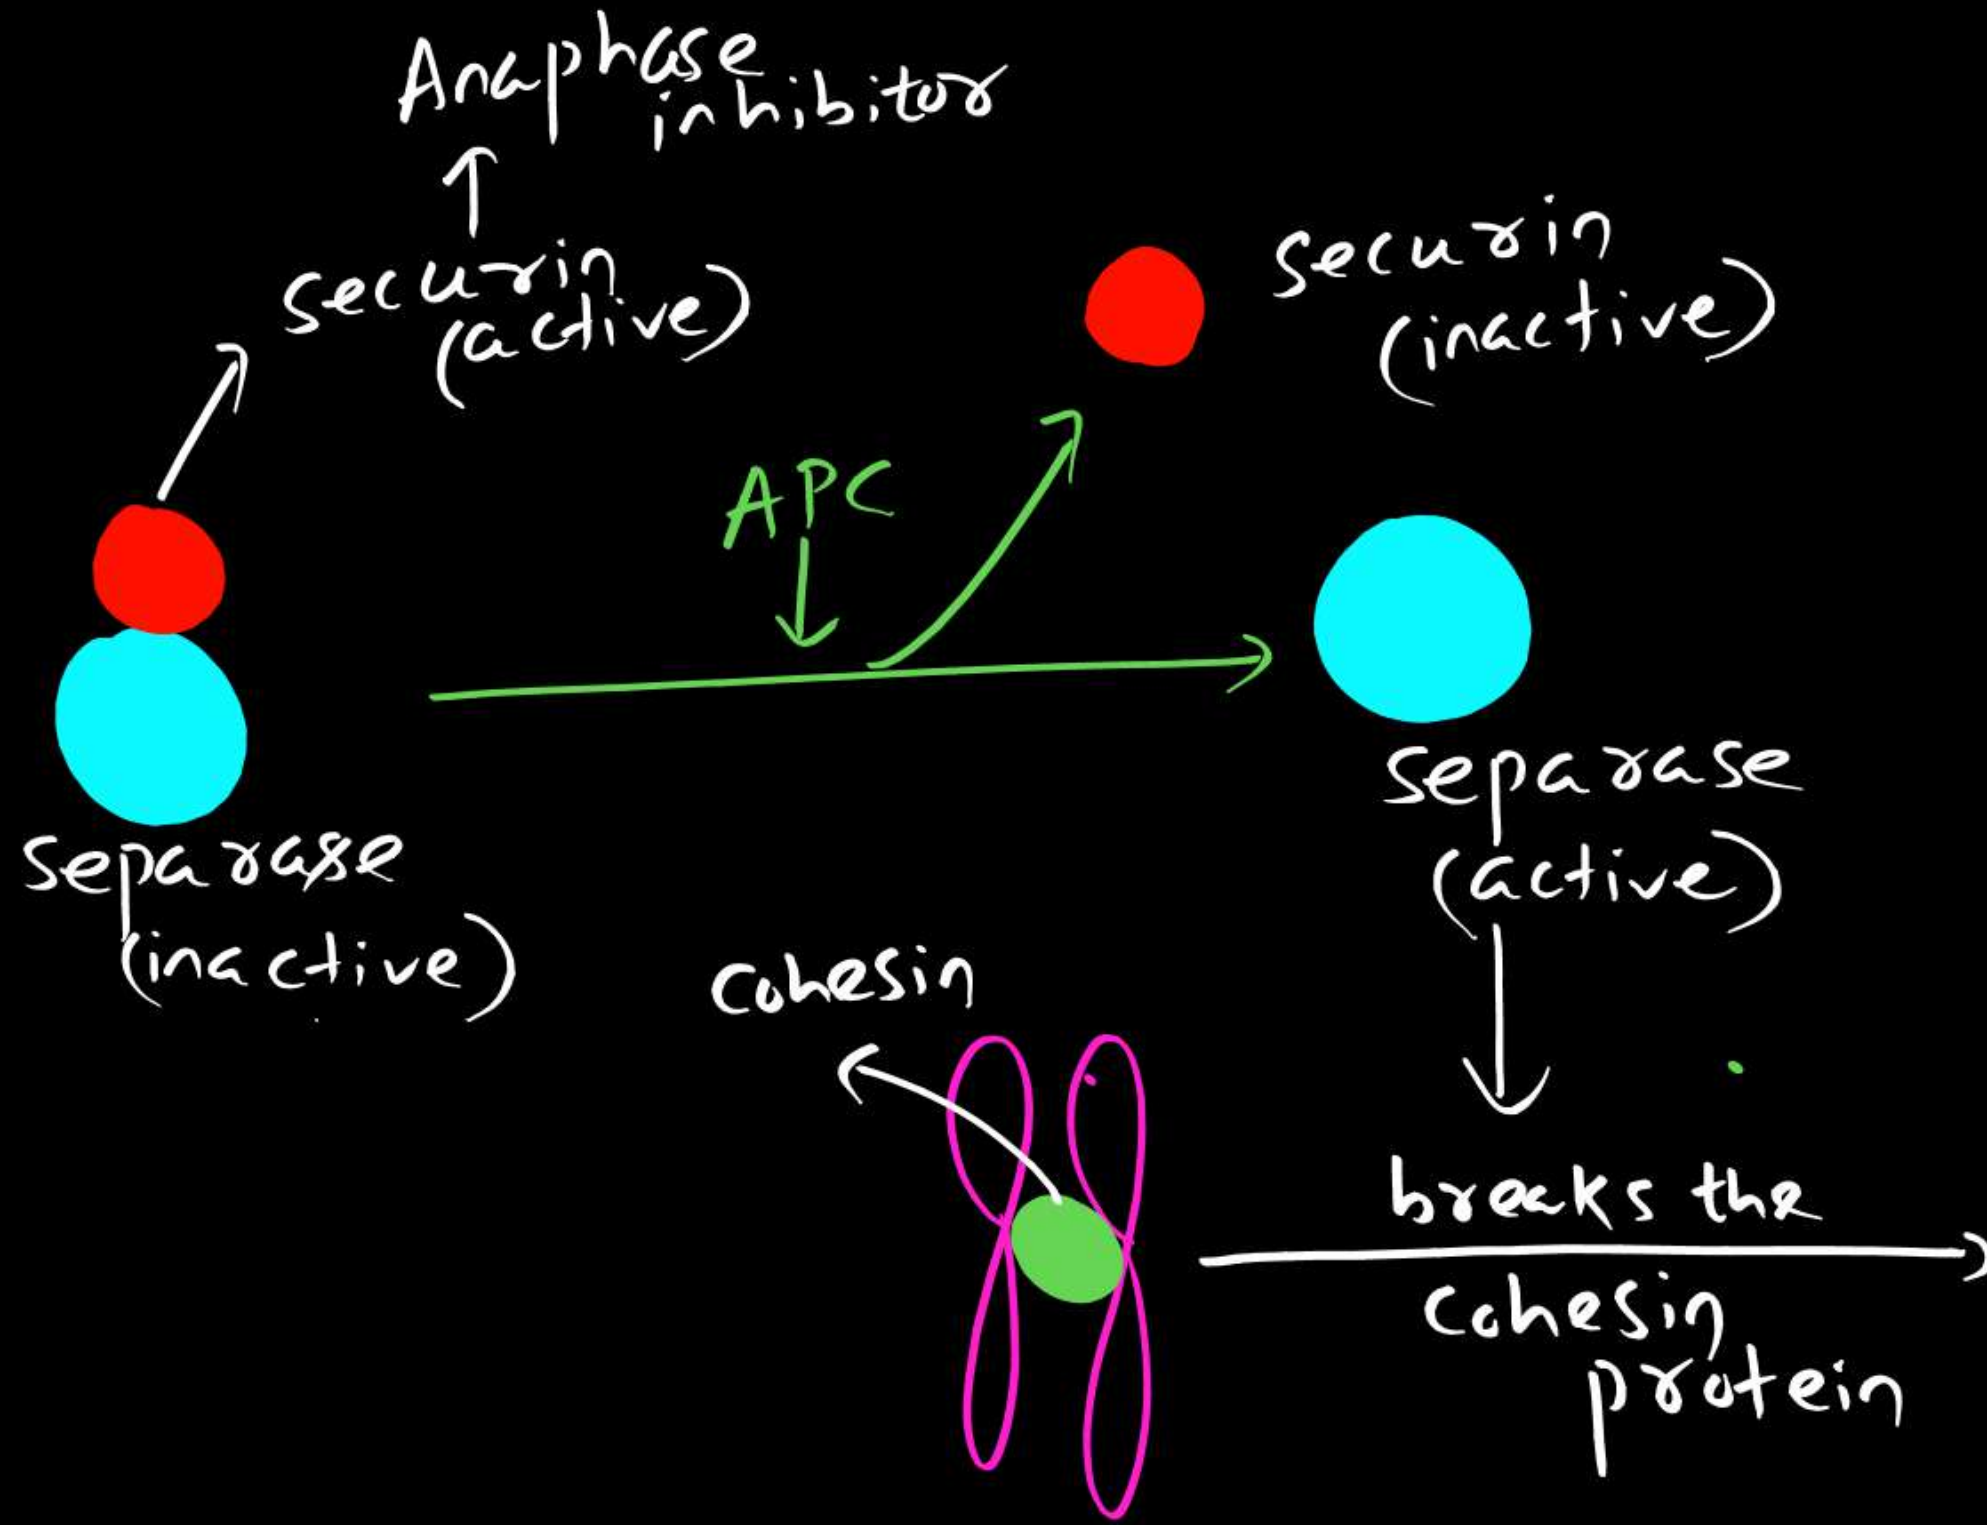 Anaphase
inhibitor
securin
(active)
securin
(inactive)
APC
separase
(inactive)
separase
(active)
cohesin
breaks the
cohesin
protein